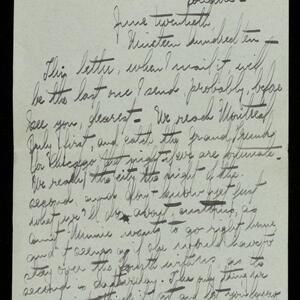 June twentieth
Nineteen hundred ten —
This letter, when I mail it will
be the last one I send probably, before I
see you, dearest. We reach Montreal
July first, and catch the grand trunk
for Chicago that night if we are fortunate.
We reach the city the night of the
second and I don't know yet just
what we'll do about anything, as
Aunt Minnie wants to go right home
and it seems as if she would have to
stay over the fourth as the
second is Saturday. The only time